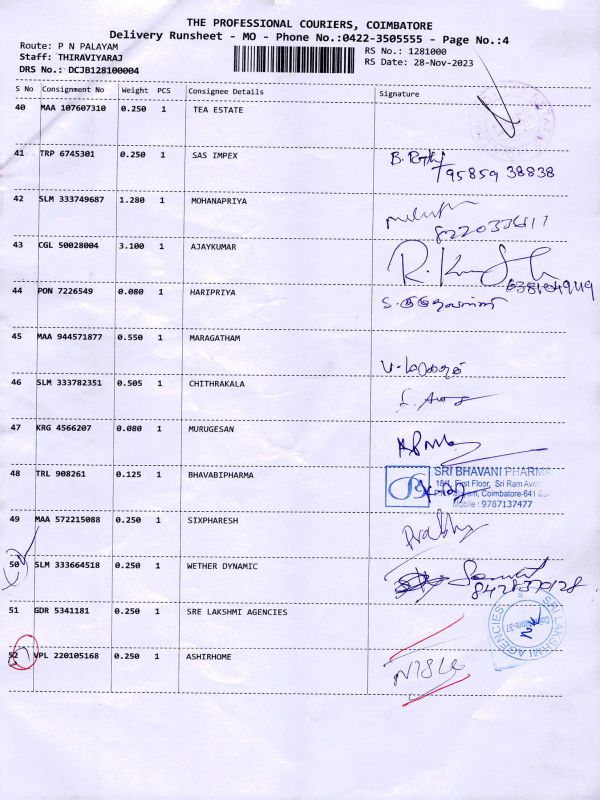 THE PROFESSIONAL COURIERS, COIMBATORE
Delivery Runsheet - MO - Phone No.:0422-3505555 - Page No.:4
Route: P N PALAYAM
Staff: THIRAVIYARAJ
DRS No.: DCJB128100004
RS No.: 1281000
RS Date: 28-Nov-2023
S No Consignment No Weight PCS Consignee Details Signature
40 MAA 107607310 0.250 1 TEA ESTATE
41 TRP 6745301 0.250 1 SAS IMPEX
95859 38838
42 SLM 333749687 1.280 1 MOHANAPRIYA
43 CGL 50028004 3.100 1 AJAYKUMAR
44 PON 7226549 0.080 1 HARIPRIYA
45 MAA 944571877 0.550 1 MARAGATHAM
46 SLM 333782351 0.505 1 CHITHRAKALA
47 KRG 4566207 0.080 1 MURUGESAN
48 TRL 908261 0.125 1 BHAVABIPHARMA
SRI BHAVANI PHARMA
First Floor, Sri Ram
Coimbatore-641
Mobile : 9787137477
49 MAA 572215088 0.250 1 SIXPHARESH
Prabhu
50 SLM 333664518 0.250 1 WETHER DYNAMIC
51 GDR 5341181 0.250 1 SRE LAKSHMI AGENCIES
SRI LAKSHMI AGENCIES
52 VPL 220105168 0.250 1 ASHIRHOME